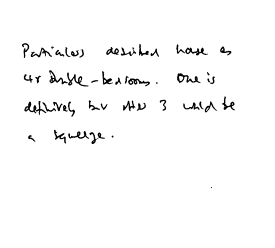 Particulars described house as
4x double-bedrooms. One is
definitely but other 3 would be
a squeeze.